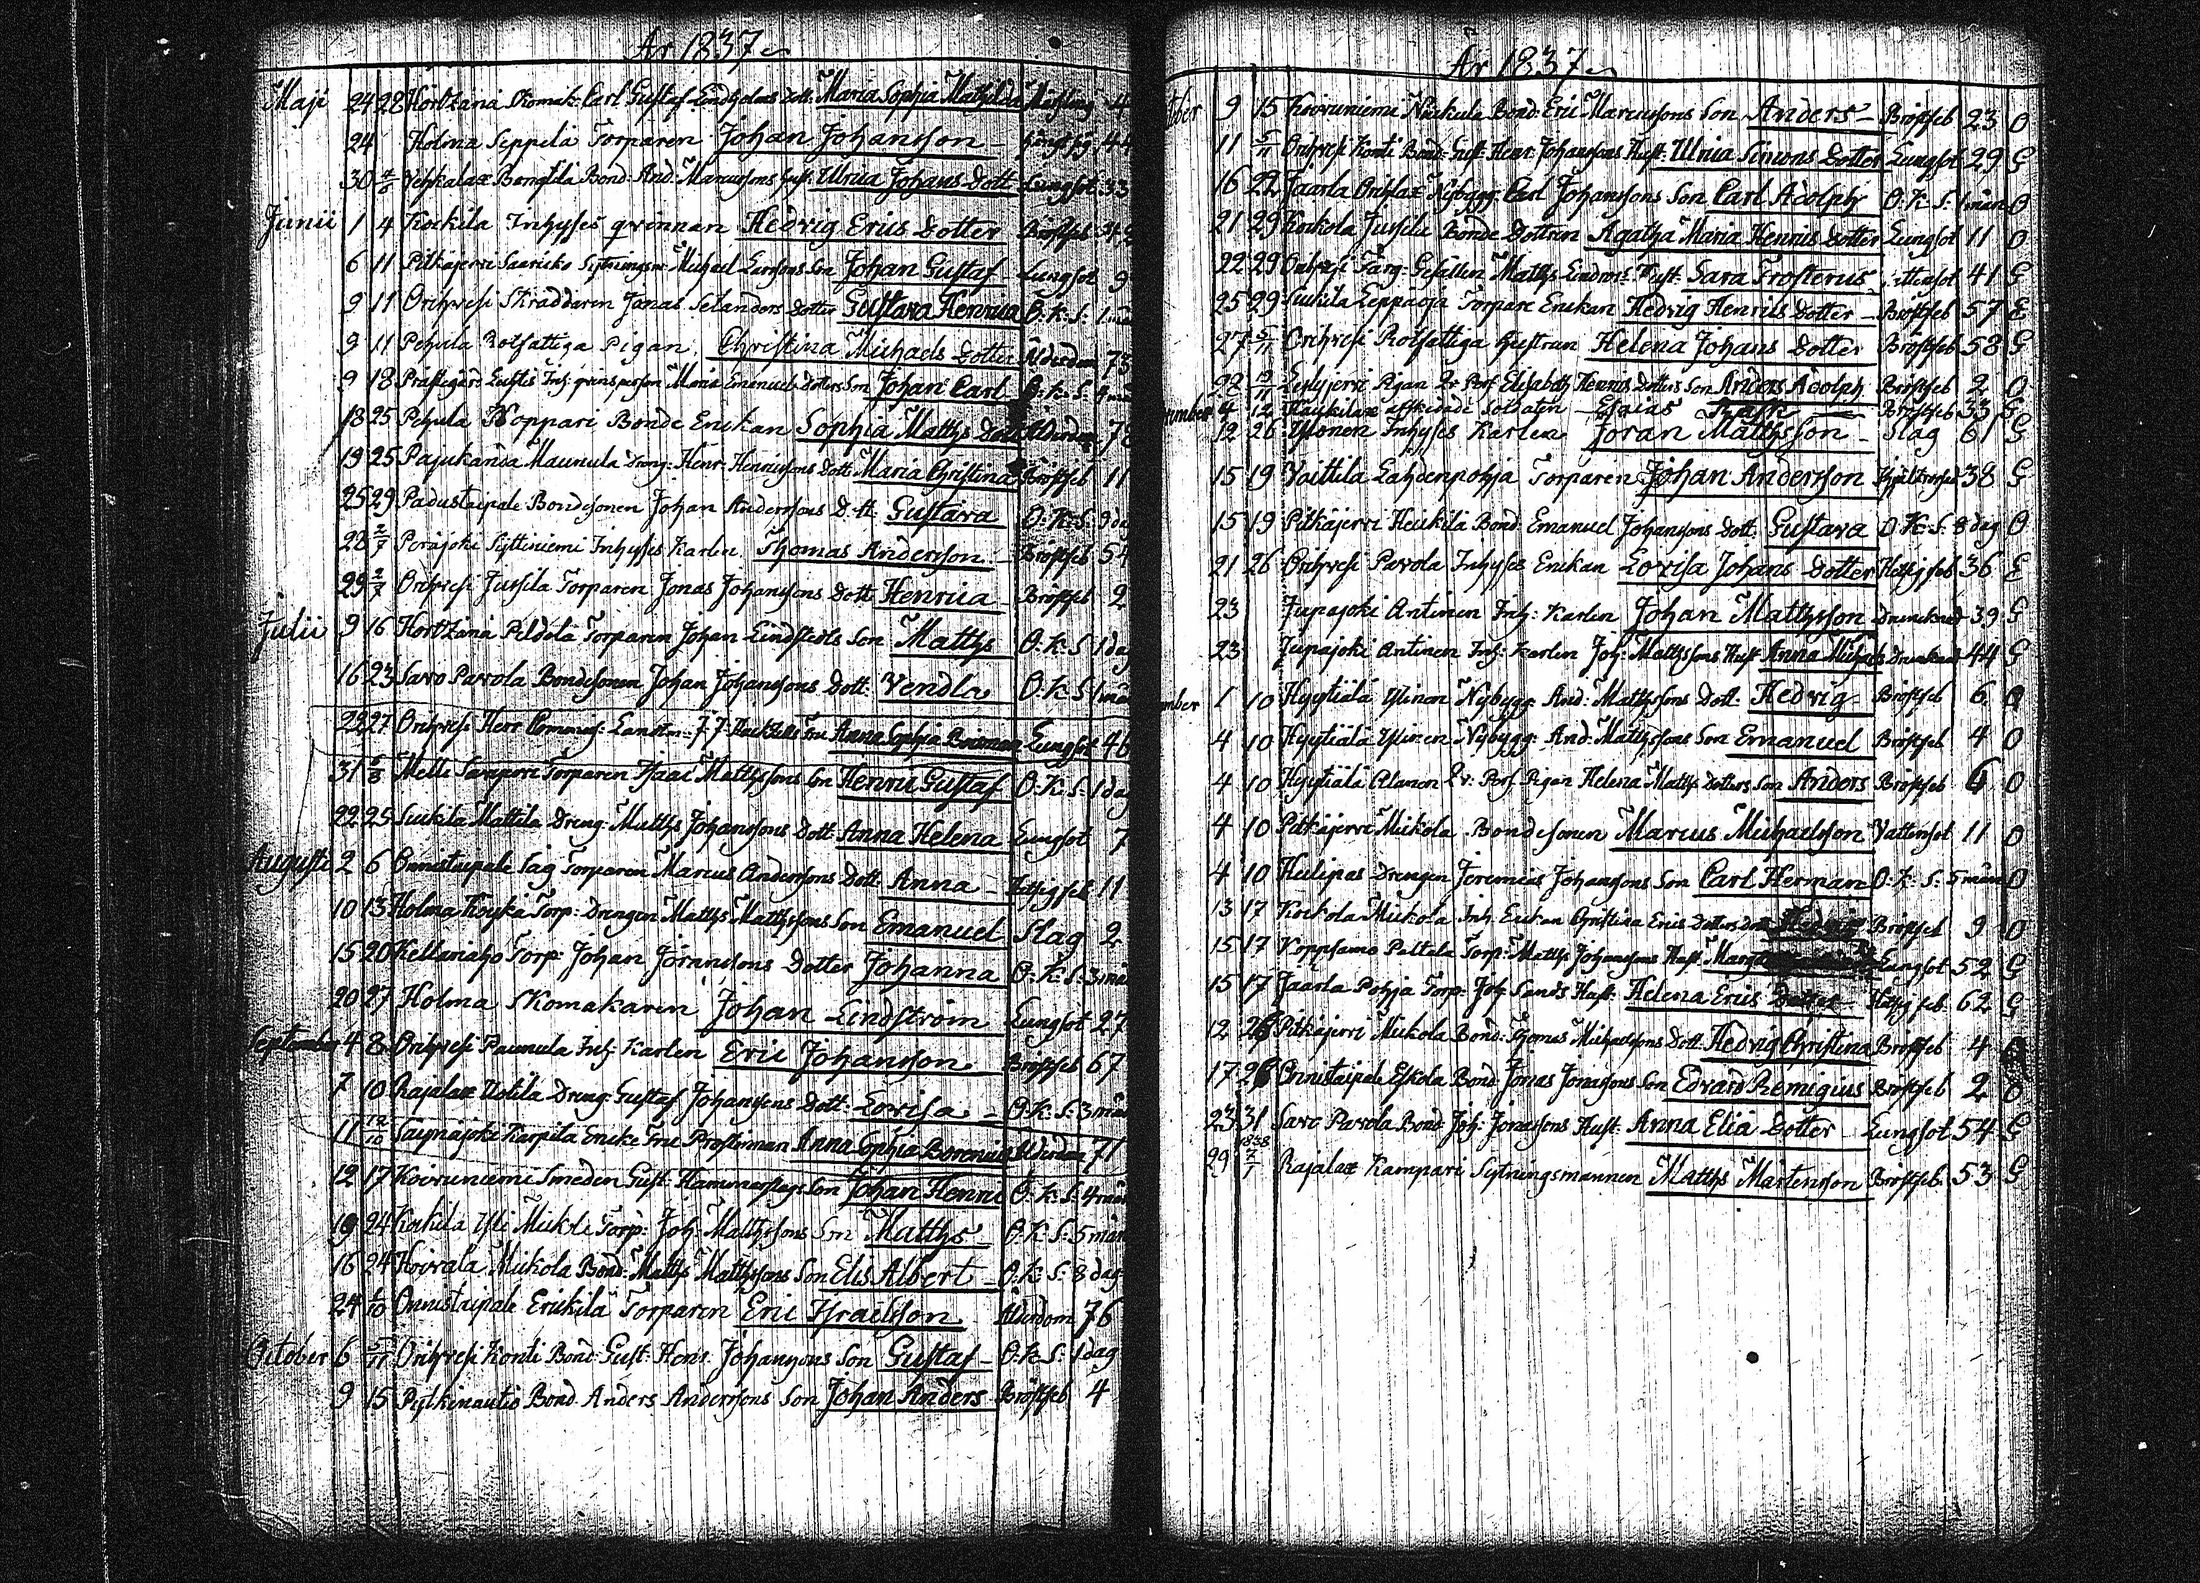 År 1837
Maji 24 28 Hortzana Skomak: Carl Gustaf Lindholms Dott: Maria Sophia Mathilda Mässling 4
24 Holma Seppela Torparen Johan Johansson 44
30 4/6 Vehkalax Bängtlda Bond: And: Marcussons Hust: Ulrica Johans Dott Lungsot 33
Junii 1 4 Korkila Inhyses qvinnan Hedvig Erics Dotter Bröstfeb
6 11 Pitkäjervi Saaricko Sytningsm: Michael Larssons Son Johan Gustaf Lungsot 9
9 11 Orihvesi Skräddaren Jonas Selanders Dotter Gustava Henrica O: K: S: 1 mån
9 11 Pehula Rotfattiga Pigan Christina Michaels Dotter Ålderdom 73
9 18 Prästegård Lechtis Inh: qvinsperson Maria Emanuels Dotters Son Johan Carl O: K: S:
18 25 Pehula Noppari Bonde Enckan Sophia Matths Dott Ålderdom
19 25 Pajukanda Maunula Dreng: Henr: Henricssons Dott: Maria Christina Bröstfeb 11
25 29 Padustaipale Bondesonen Johan Anderssons Dott Gustava O: K: S: 9 da
28 2/7 Porajoki Syttiniemi Inhyses Karlen Thomas Andersson Bröstfeb 54
29 2/7 Orihvesi Jussila Torparen Jonas Johanssons Dott Henrica Bröstfeb 2
Julii 9 16 Hortzana Peldola Torparen Johan Lindstedts Son Matths O: K: S 1 dag
16 23 Savo Parrola Bondesonen Johan Johanssons Dott: Vendla O: K: S 1 mån
22 27 Orihvesi Herr Commiss: Landtm: Fru Anna Sophia Lungsot 46
31 6/8 Melli Sarapori Torparen Isaac Matthssons Son Henric Gustaf O: K: S: 1 dag
22 25 Suckila Mattila Dreng: Matths Johanssons Dott: Anna Helena Lungsot 7
Augusti 2 6 Onnistaipale Torparen Marcus Anderssons Dott: Anna Hetsig feb 11
10 13 Holma Torp: Drengen Matths Matthssons Son Emanuel Slag 2
15 20 Kellariaho Torp: Johan Joranssons Dotter Johanna O: K: S: 3 mån
20 27 Holma Skomakaren Johan Lindström Lungsot 27
September 4 8 Orihvesi Paunula Inh: Karlen Eric Johansson Bröstfeb 67
7 10 Rajalax Uotila Dreng: Gustaf Johanssons Dott: Lovisa O: K: S: 3 mån
11 12/10 Saynäjoki Karpila Encke Fru Anna Sophia Borenius Ålderdom 71
12 17 Koivuniemi Smeden Gust: Hammarslags Son Johan Henric O: K: S: 4 mån
19 24 Korkila Yli Mickola Torp: Joh: Matthssons Son Matths O: K: S: 5 mån
16 24 Hoivala Mickola Bond: Matths Matthssons Son Elis Albert O: K: S: 8 dag
24 1/10 Onnistaipale Erickila Torparen Eric Israelsson Ålderdom 76
October 6 5/11 Orihvesi Konti Bond: Gust: Henr: Johanssons Son Gustaf O: K: S: 1 dag
9 15 Pylkenautio Bond: Anders Anderssons Son Johan Anders Bröstfeb 4
År 1837
tober 9 15 Koivuniemi Nickula Bond: Eric Marcussons Son Anders Bröstfeb 23 O
11 5/11 Orihvesi Konti Bond: Gust: Henr: Johanssons Hust: Ulrica Simons Dotter Lungsot 29 G
16 22 Jaarla Orihlax Nybygg: Carl Johanssons Son Carl Adolph O: K: S: 1 mån O
21 29 Korkola Jussila Bonde Dottren Agatha Maria Henrics Dotter Lungsot 11 O
22 29 Orihvesi Färg: Gesällen Matths Lindroos Hust: Sara Frosterus Vattensot 41 G
25 29 Suckila Leppäoja Torpare Enckan Hedvig Henrics Dotter Bröstfeb 57 E
27 5/11 Orihvesi Rotfattiga Hustrun Helena Johans Dotter Bröstfeb 58 G
22 Lylyjervi Pigan Qv: Pers: Elisabeth Henrics Dotters Son Anders Adolph Bröstfeb 2 O
vember 4 12 Haukilax afskedade Soldaten Esaias Rask Bröstfeb 33 G
12 26 Ylönen Inhyses Karlen Joran Matthsson Slag 61 G
15 19 Voittila Lahdenpohja Torparen Johan Andersson 38 G
15 19 Pitkäjervi Heickilä Bond: Emanuel Johanssons Dott: Gustava O: K: S: 8 dag O
21 26 Orihvesi Pavola Inhyses Enckan Lovisa Johans Dotter Hetsig feb 36 E
23 Jupajoki Antinen Inh: Karlen Johan Matthsson Drunknad 39 G
23 Jupajoki Antinen Inh: Karlen Joh: Matthssons Hust: Anna Michaels Drunknad 44 G
ember 1 10 Hyytiälä Ylinen Nybygg: And: Matthssons Dott: Hedvig Bröstfeb 6 O
4 10 Hyytiälä Ylinen Nybygg: And: Matthssons Son Emanuel Bröstfeb 4 O
4 10 Hyytiälä Alanen Qv: Pers: Pigan Helena Matths Dotters Son Anders Bröstfeb 6 O
4 10 Pitkäjervi Mickola Bondesonen Marcus Michaelsson Vattensot 11 O
4 10 Hulipas Drengen Jeremias Johanssons Son Carl Herman O: K: S: 5 mån O
13 17 Korkola Mickola Inh: Enckan Christina Erics Dotters Dott Bröstfeb 9 O
15 17 Koppsamo Pattala Torp: Matths Johanssons Hust: Lungsot 52 G
15 17 Jaarla Pohja Torp: Joh: Sands Hust: Helena Erics Dotter Hetsig feb: 62 G
12 26 Pitkäjervi Mickola Bond: Thomas Michaelssons Dott: Hedvig Christina Bröstfeb 4
17 26 Onnistaipale Eskola Bond: Jonas Jonassons Son Edvard Remigius Bröstfeb 2 O
23 31 Savo Pavola Bond: Joh: Jonassons Hust: Anna Elia Dotter Lungsot 54 G
29 1838 7/1 Rajalax Kampari Sytningsmannen Matths Mårtensson Bröstfeb: 53 G